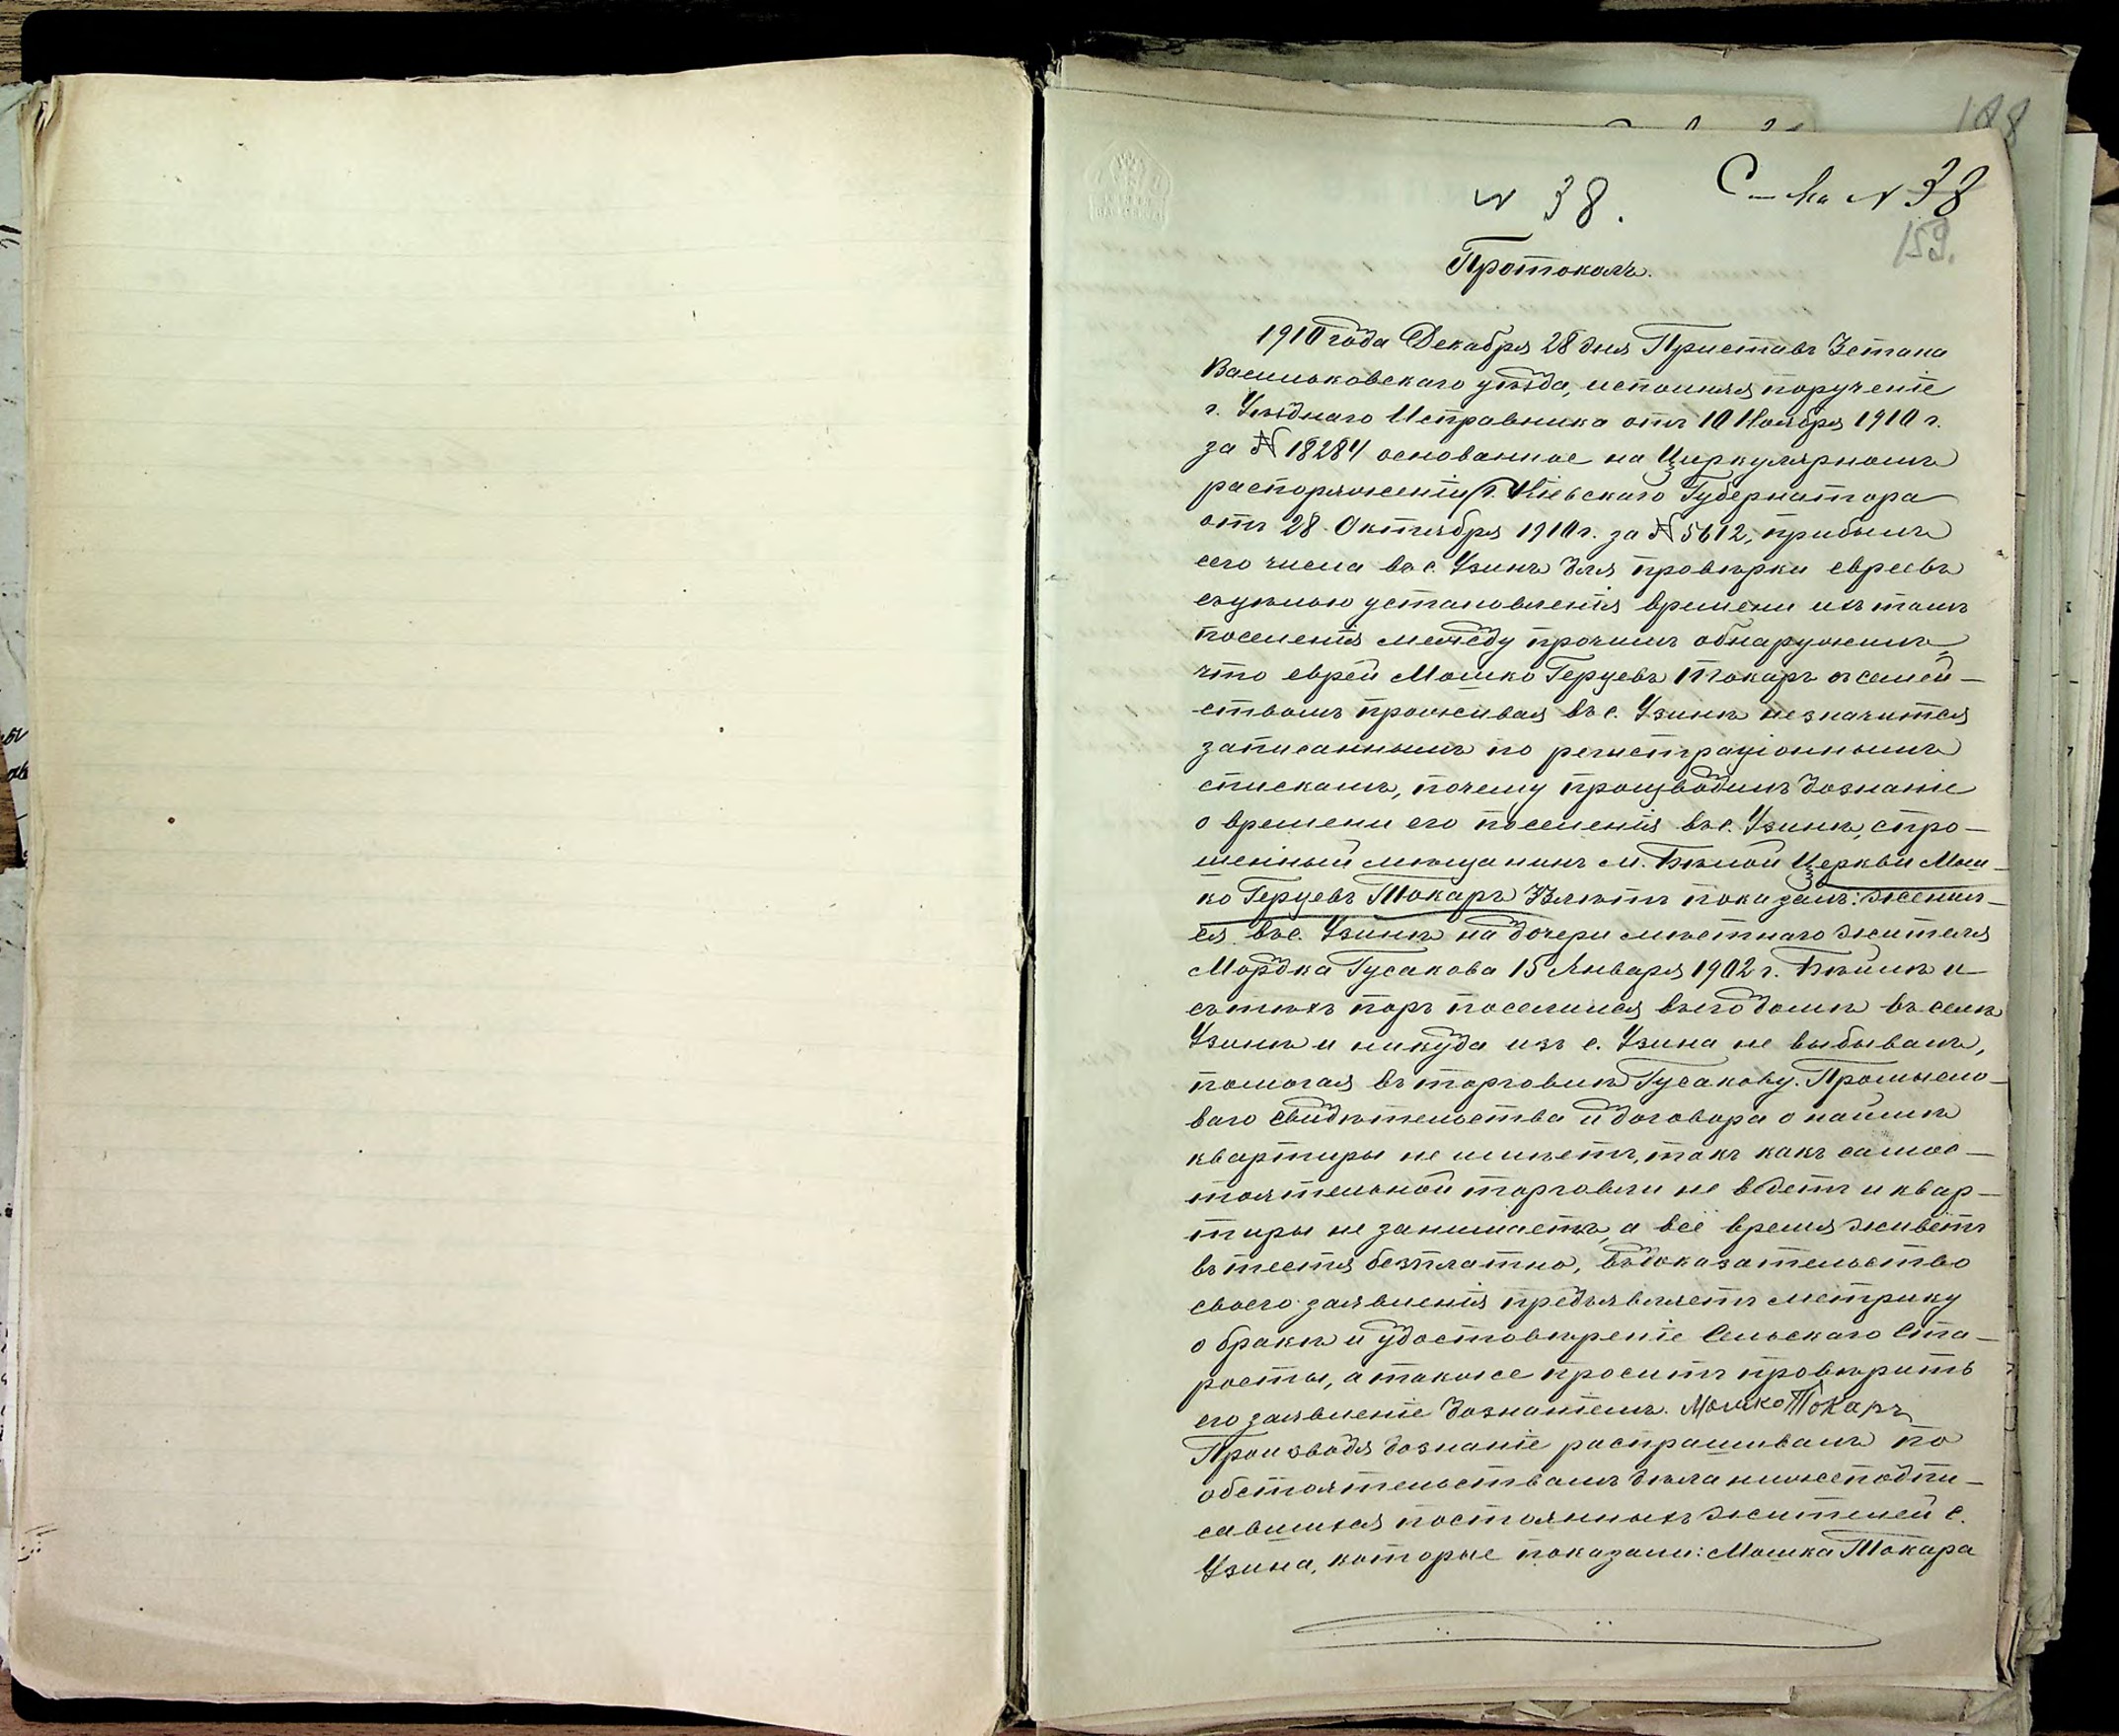 188
С–ка № 38
№ 38.
159.
Протоколъ.
1910 года Декабря 28 дня Приставъ 3 стана
Васильковскаго уѣзда, исполняя порученіе
г. Уѣзднаго Исправника отъ 10 Ноября 1910 г.
за № 18284 основанное на Циркулярномъ
распоряженіи г. Кіевскаго Губернатора
отъ 28 Октября 1910 г. за № 5612, прибылъ
сего числа въ с. Узинъ для провѣрки евреевъ
съ цѣлью установленія времени ихъ тамъ
поселенія между прочимъ обнаружилъ,
что еврей Мошко Герцевъ Токаръ съ семей–
ствомъ проживая въ с. Узинѣ не значится
записаннымъ по регистраціоннымъ
спискамъ, почему производилъ дознаніе
о времени его поселенія въ с. Узинѣ, спро–
шенный мѣщанинъ м. Бѣлой Церкви Мош–
ко Герцевъ Токаръ лѣтъ показалъ: женил–
ся въ с. Узинѣ на дочери мѣстнаго жителя
Мордка Гусакова 15 Января 1902 г. Бейлѣ и
съ тѣхъ поръ поселился въ его домѣ въ селѣ
Узинѣ и никуда изъ с. Узина не выбывалъ,
помогая въ торговлѣ Гусакову. Промысло–
ваго свидѣтельства и договора о наймѣ
квартиры не имѣетъ, такъ какъ самос–
тоятельной торговли не ведетъ и квар–
тиры не занимаетъ, а всё время живетъ
въ тестя безплатно, въ доказательство
своего заявленія предъявляетъ метрику
о бракѣ и удостовѣреніе Сельскаго Ста–
росты, а также проситъ провѣрить
его заявленіе дознаніемъ. Мошко Токаръ
Производя дознаніе распрашивалъ по
обстоятельствамъ дѣла нижеподпи–
савшихся постоянныхъ жителей с.
Узина, которые показали: Мошка Токара